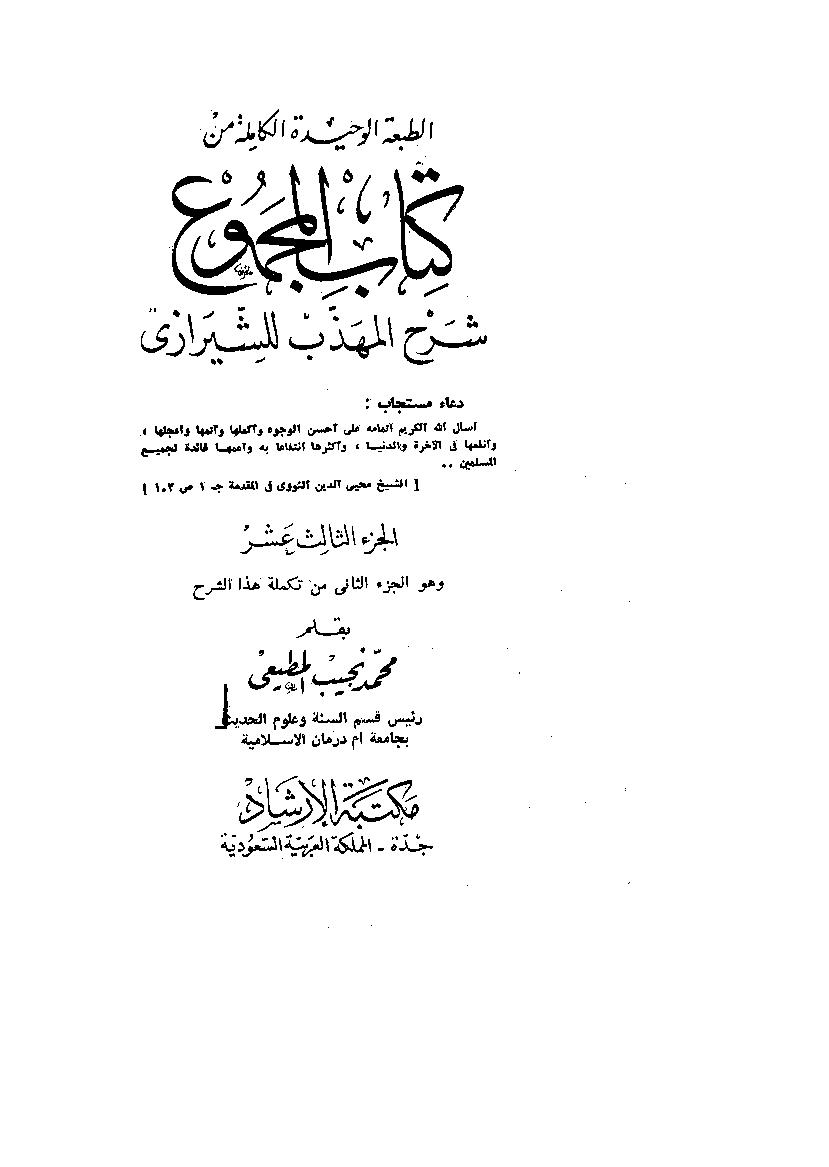 الطبعة الوحيدة الكاملة من
كتاب المجموع
شرح المهذب للشيرازى
دعاء مستجاب :
أسال الله الكريم اتمامه على أحسن الوجوه وأكملها وأتمها وأعجلها ،
وأنفعها فى الآخرة والدنيا ، وأكثرها انتفاعا به وأعمها فائدة لجميع
المسلمين ..
[ الشيخ محيى الدين النووى فى المقدمة جـ ١ ص ١٠٣ ]
الجزء الثالث عشر
وهو الجزء الثانى من تكملة هذا الشرح
بقلم
محمد نجيب المطيعى
رئيس قسم السنة وعلوم الحديث
بجامعة ام درمان الاسلامية
مكتبة الإرشاد
جدة - المملكة العربية السعودية